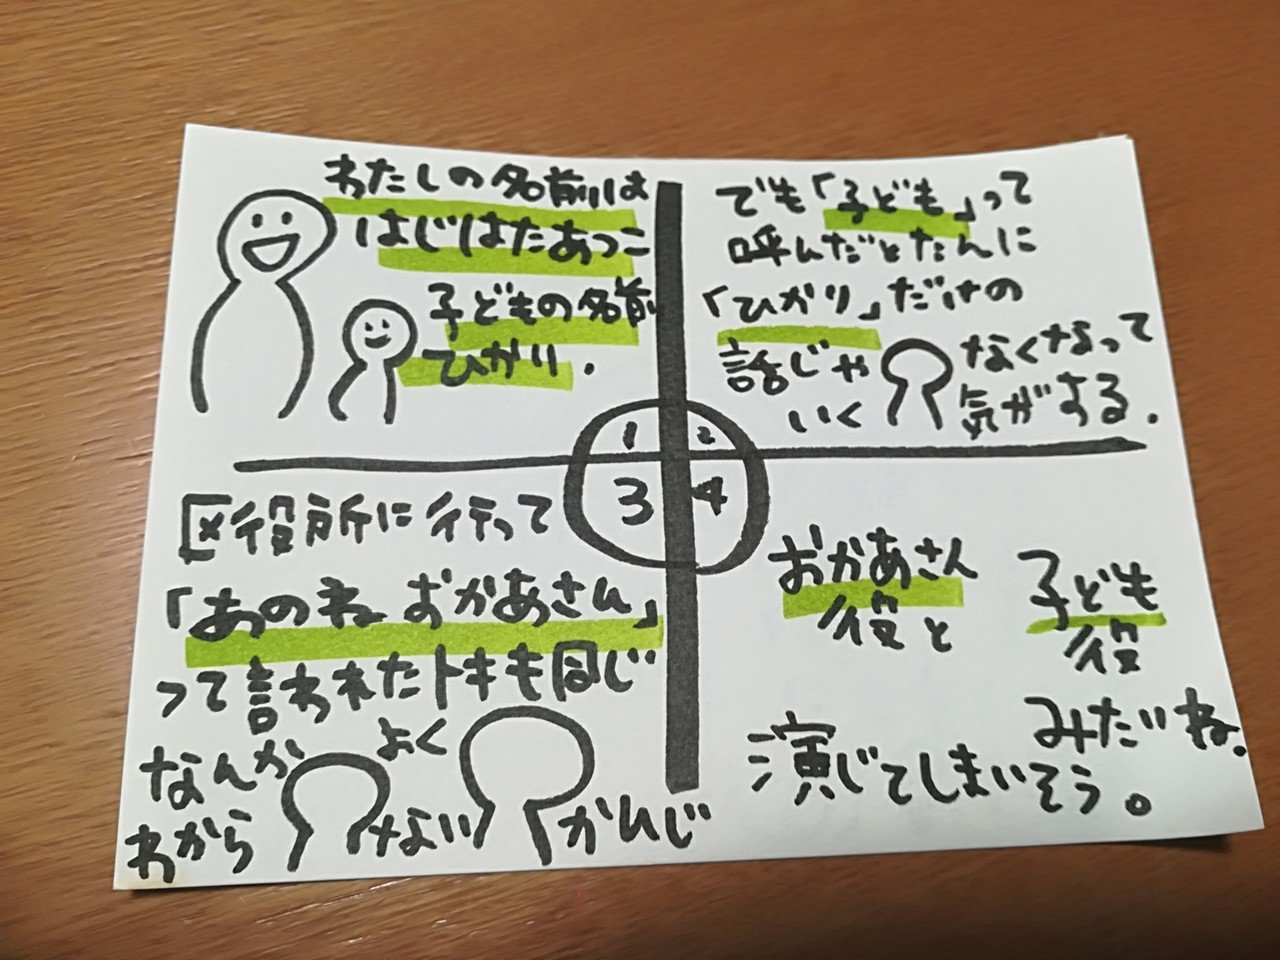 わたしの名前は
はじはたあつこ
子どもの名前
ひかり.
でも「子ども」って
呼んだとたんに
「ひかり」だけの
話じゃなくなって
いく気がする.
1
2
3
4
区役所に行って
「あのねおかあさん」
って言われたトキも同じ
なんかよく
わからないかんじ
おかあさん役と
子ども役
みたいね.
演じてしまいそう。